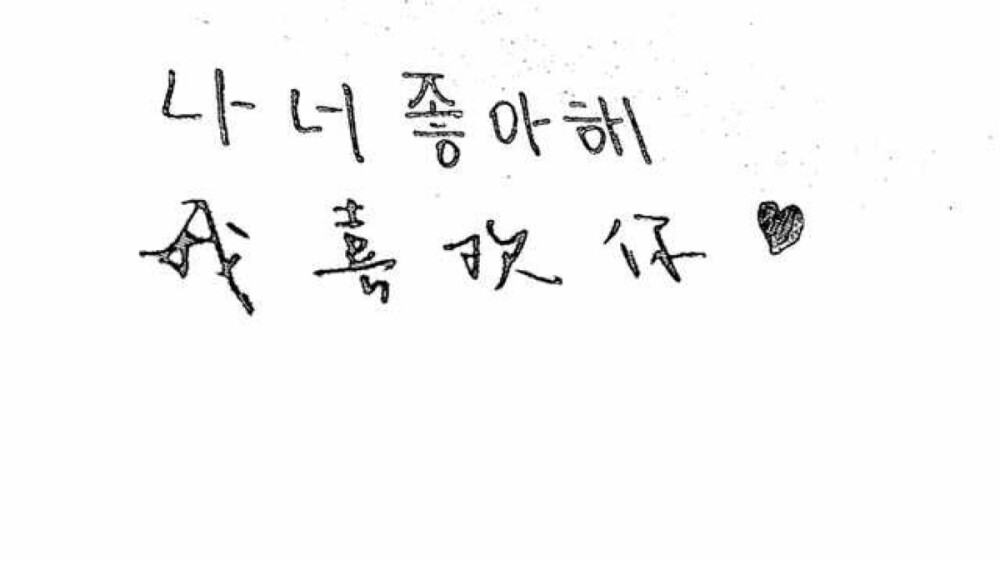 나 너 좋아해
我喜欢你